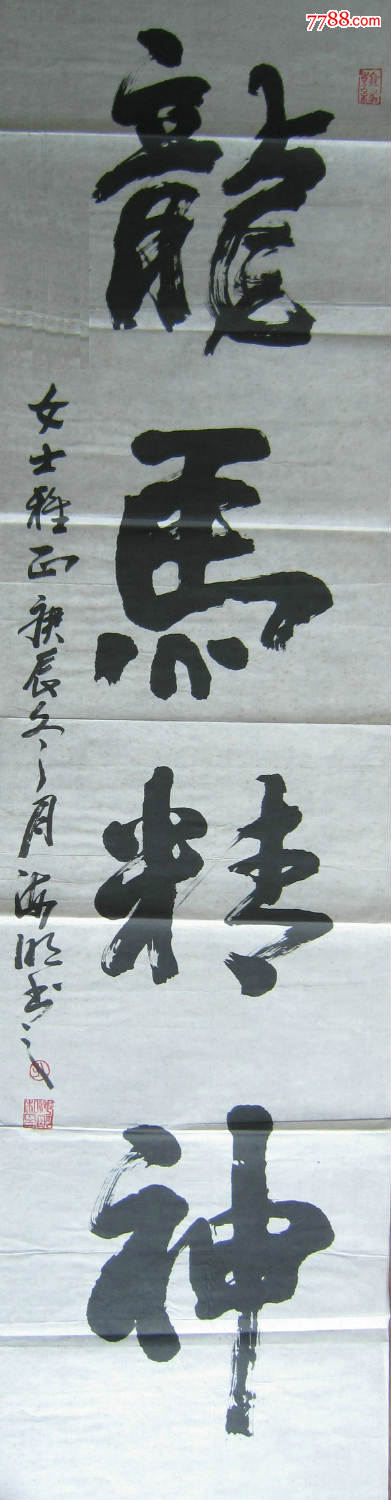 7788.com
龍馬精神
女士雅正 庚辰冬月 海明书之